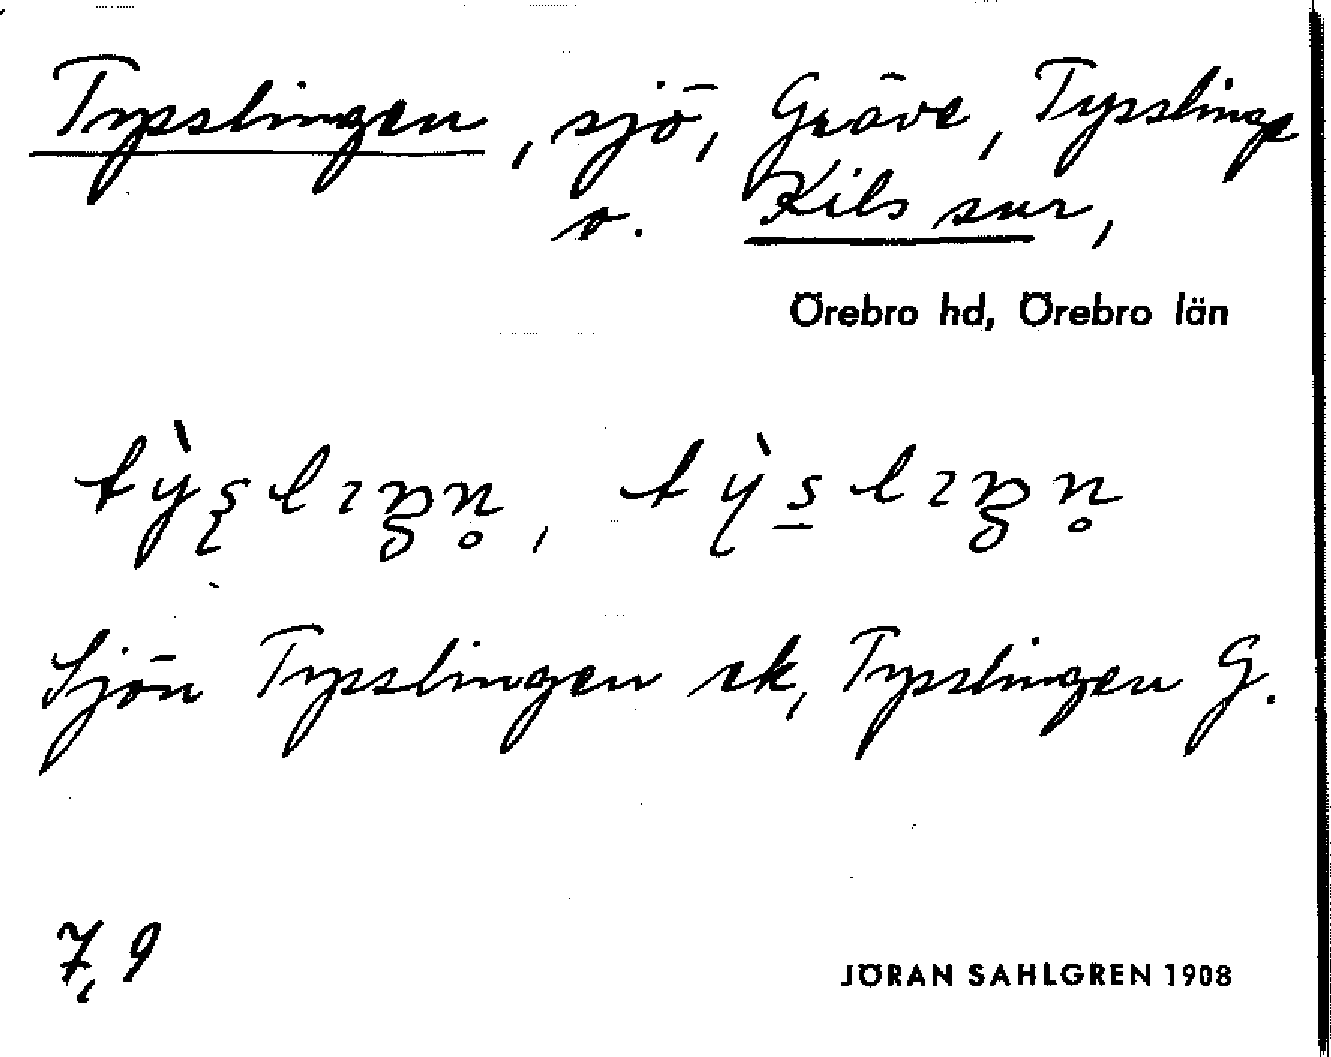 Tysslingen, sjö, Gräve, Tysslinge
o. Kils snr,
Örebro hd, Örebro län
Sjön Tysslingen ek, Tysslingen G.
7,9
JÖRAN SAHLGREN 1908